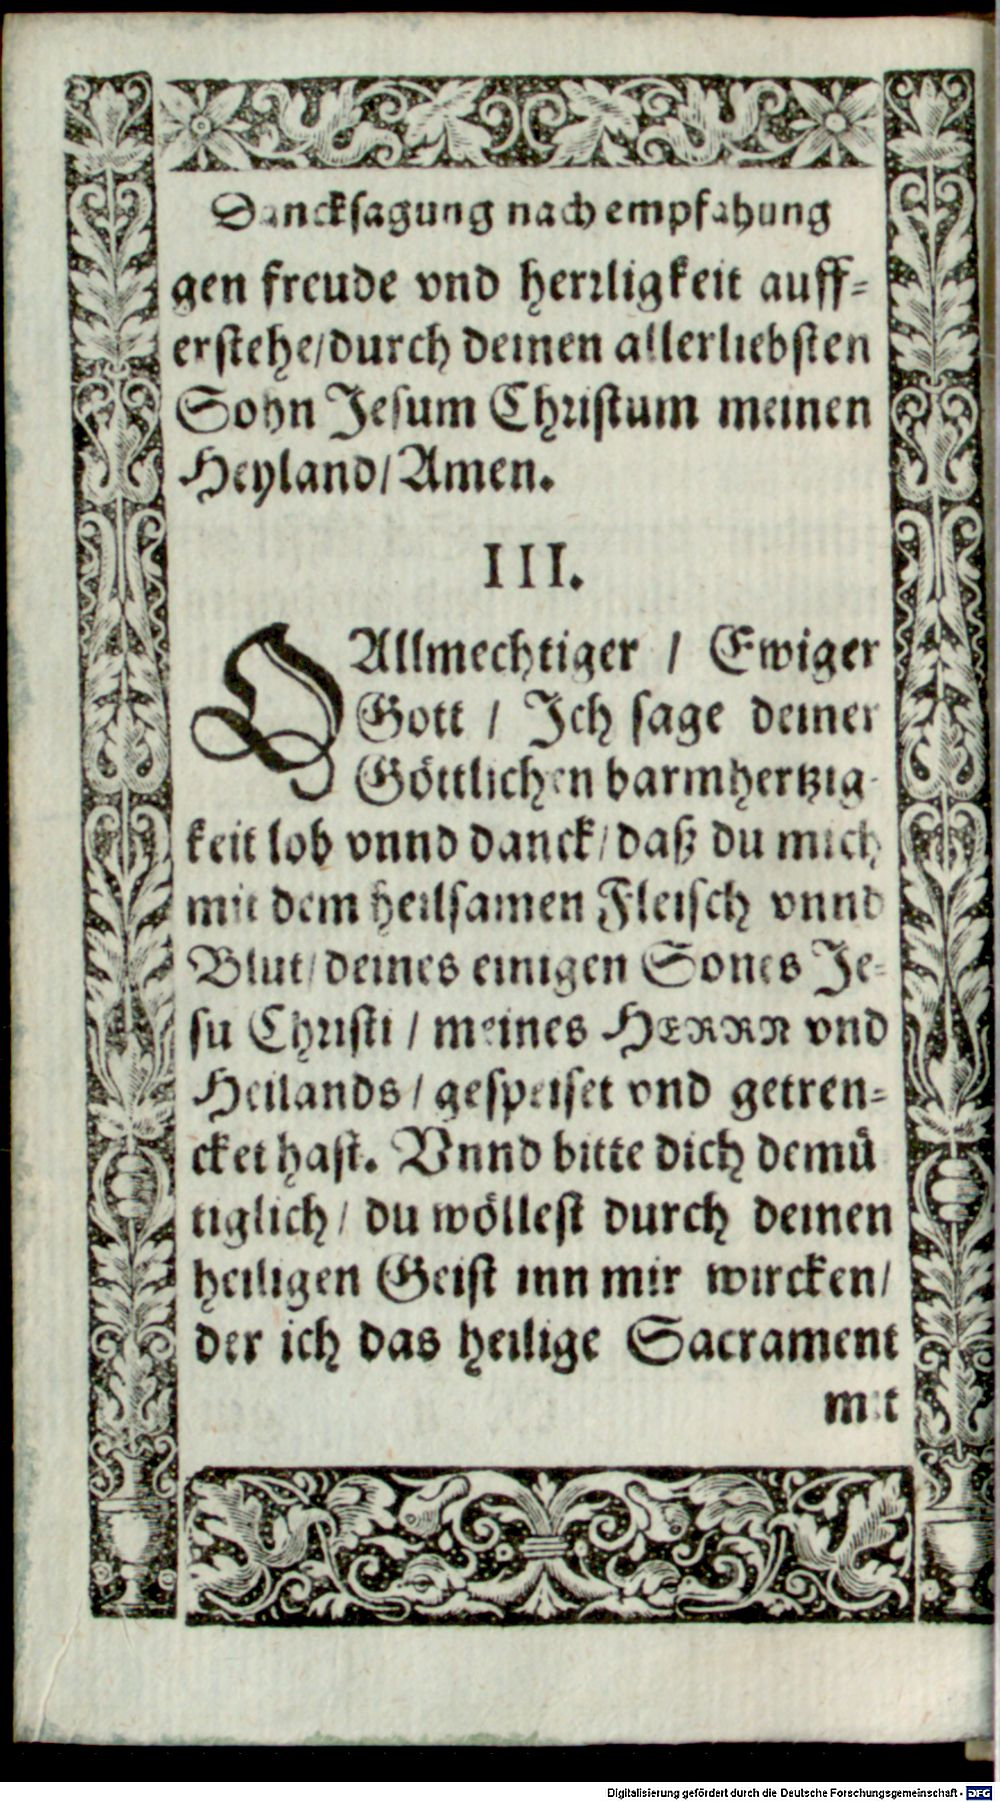 Dancksagung nach empfahung
gen freude vnd herrligkeit auff=
erstehe/durch deinen allerliebsten
Sohn Jesum Christum meinen
Heyland/Amen.
III.
O Allmechtiger / Ewiger
Gott / Ich sage deiner
Göttlichen barmhertzig-
keit lob vnnd danck/daß du mich
mit dem heilsamen Fleisch vnnd
Blut/deines einigen Sones Je=
su Christi / meines HERRN vnd
Heilands / gespeiset vnd getren=
cket hast. Vnnd bitte dich demü
tiglich/ du wöllest durch deinen
heiligen Geist inn mir wircken/
der ich das heilige Sacrament
mit
Digitalisierung gefördert durch die Deutsche Forschungsgemeinschaft - DFG